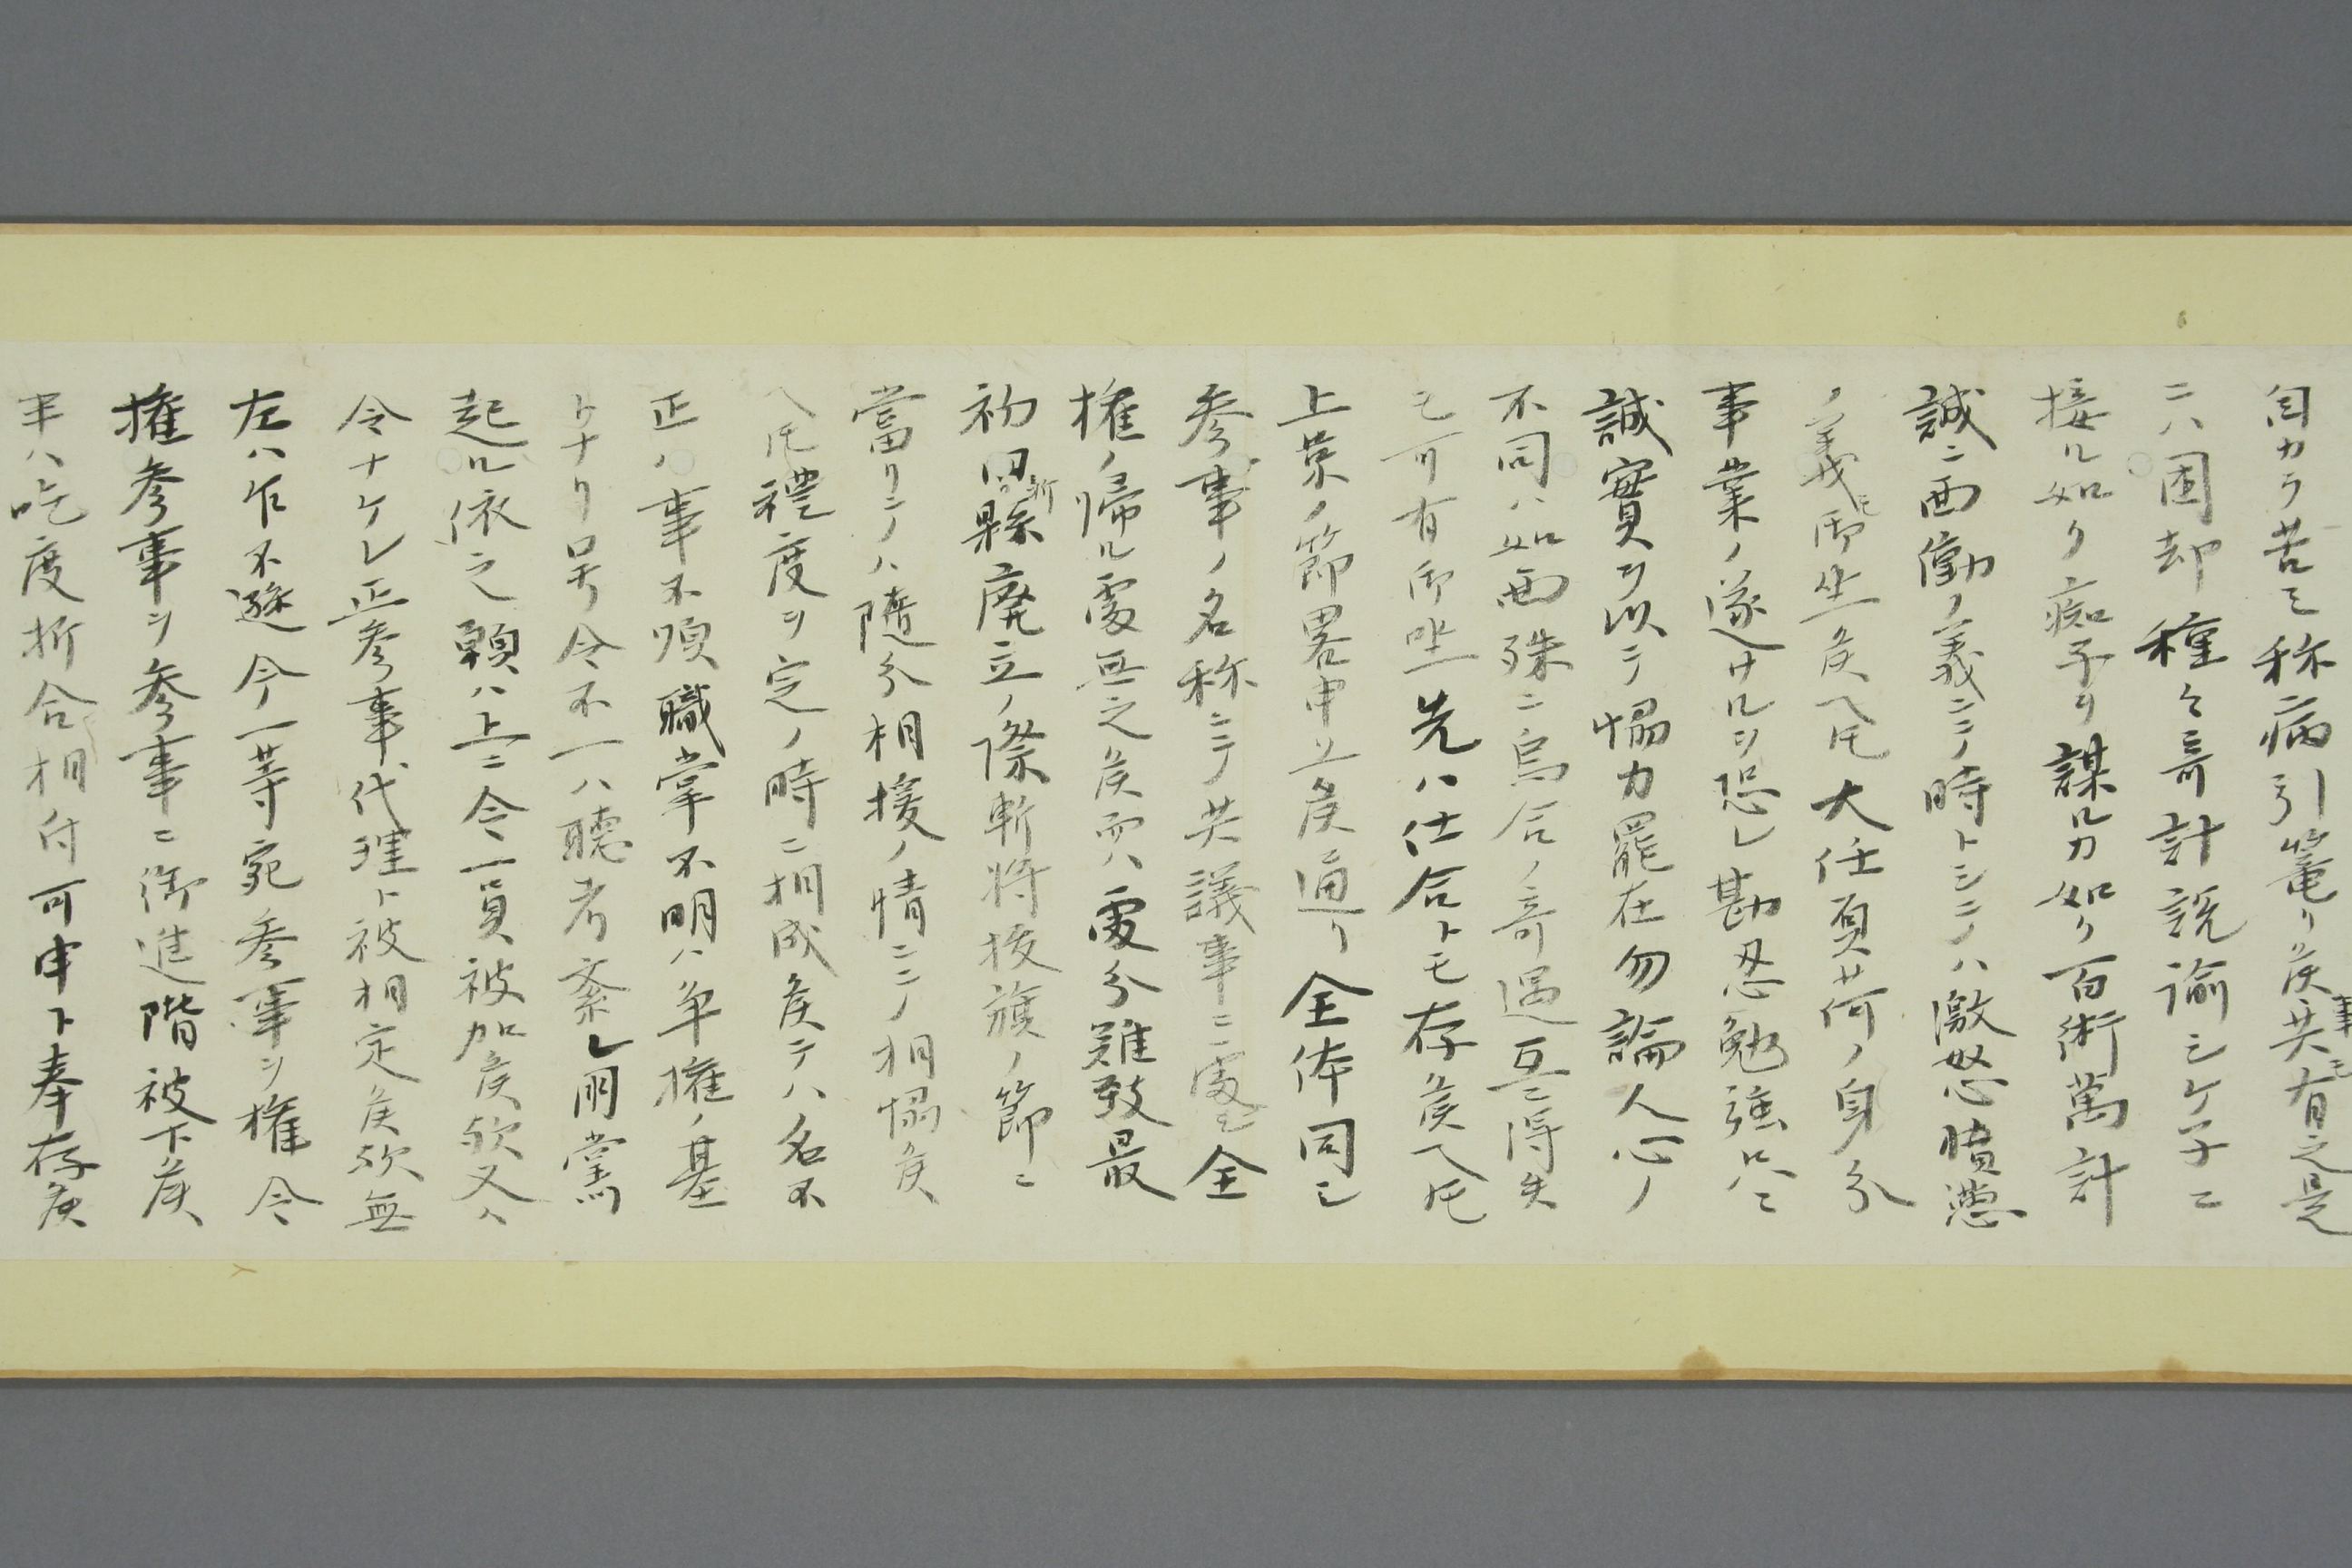 自カラ苦ミ称病引篭リ候事モ共有之是
ニハ困却種々奇計説諭シケ子ニ
接ル如ク痴子ヲ謀ルカ如ク百術萬計
誠ニ両働ノ義ニテ時トシテハ激怒憤懣
ノ義モ御坐候ヘ圧大任負荷ノ身分
事業ノ遂ケサルヲ恐レ勘忍勉強只ミ
誠實ヲ以テ協力罷在勿論人心ノ
不同ハ如面殊ニ烏合ノ奇遇互ニ得失
モ可有御坐先ハ仕合トモ存候ヘ圧
上京ノ節畧申上候通リ全体同シ
参事ノ名称ニテ共議事ニ處シ全
権ノ帰ル處無之候而ハ處分難致最
初旧縣新縣廃立ノ際斬将抜旗ノ節ニ
當リテハ随分相援ノ情ニテ相協候
ヘ圧禮度ヲ定ノ時ニ相成候テハ名不
正ハ事不順職掌不明ハ争権ノ基
トナリ号令不一ハ聴者紊レ朋黨
起ル依之願ハ上ニ令一員被加候欤又ハ
令ナケレ正参事代理ト被相定候欤無
左ハ乍不遜今一等宛参事ヲ権令
権参事ヲ参事ニ御進階被下候
半ハ吃度折合相付可申ト奉存候